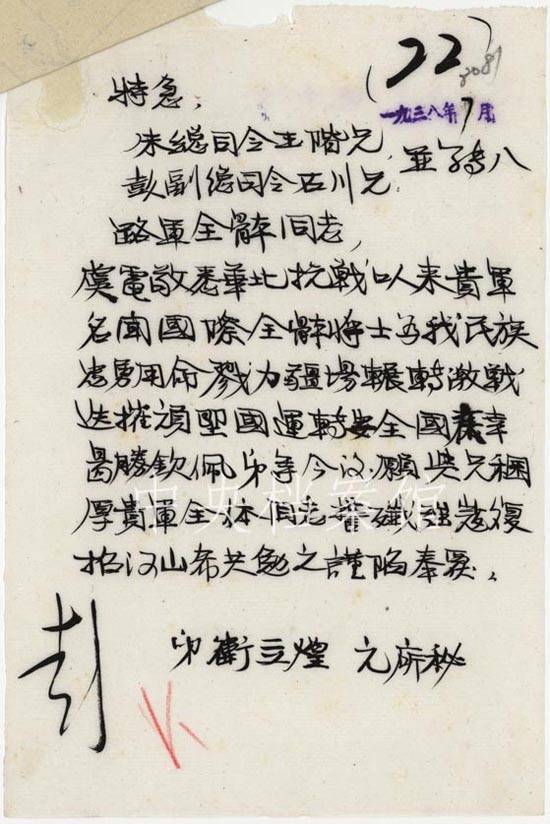 (22)
208
一九三八年7月
特急，
朱總司令玉階兄
彭副總司令石川兄 並轉八
路軍全體同志，
虞電敬悉華北抗戰以來貴軍
名聞國際全體將士為我民族
忠勇用命戮力疆場輾轉激戰
迭摧頑 國運轉安全國
曷勝欽佩弟 今後願與兄
厚貴軍全体同志 殲 寇復
拾河山希共勉之謹 奉
弟衛立煌 元 秘
彭
中央档案馆